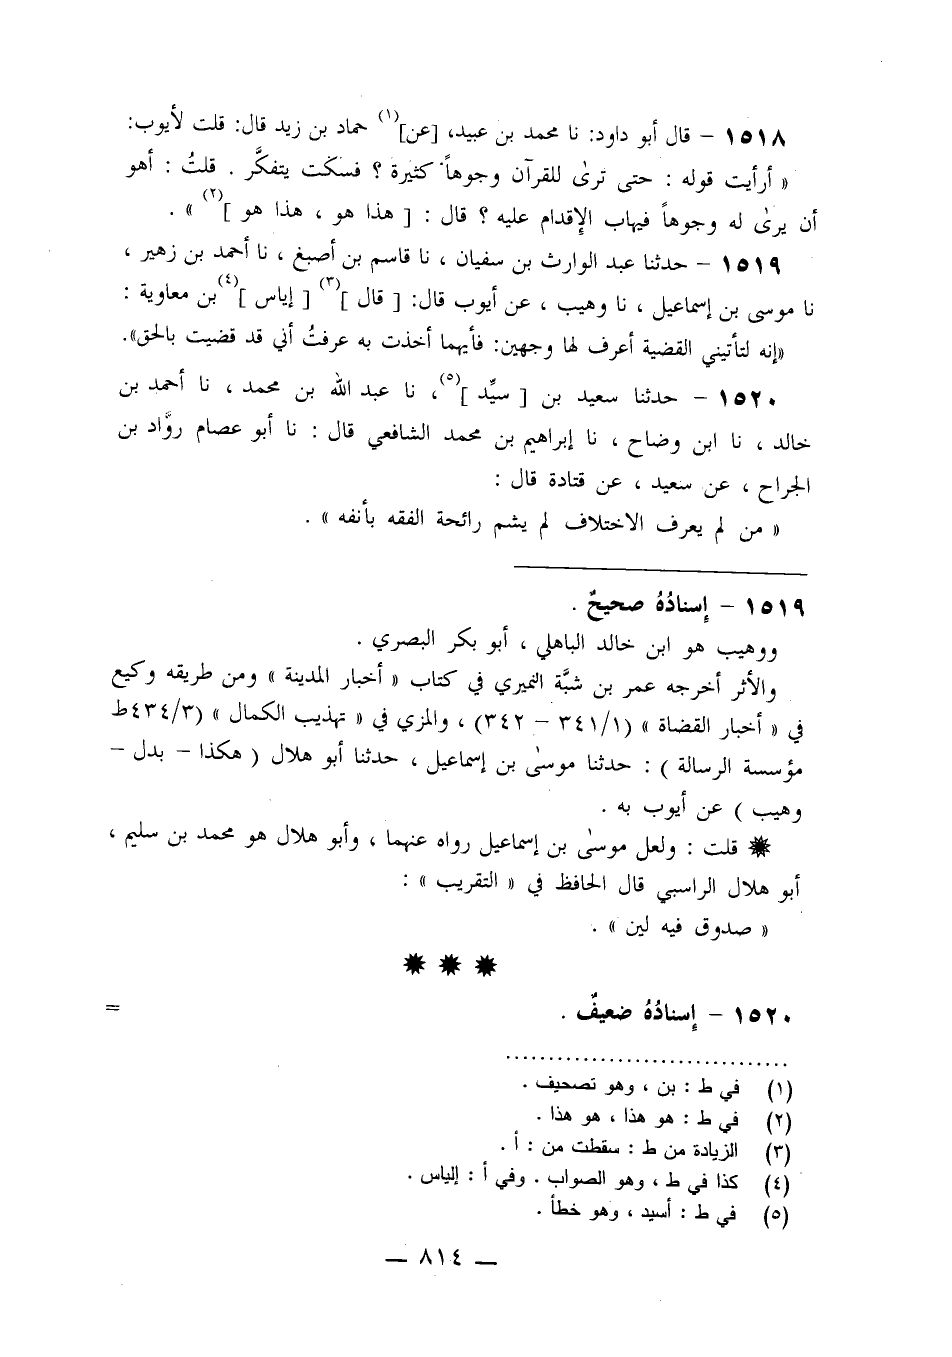 ١٥١٨ – قال أبو داود: نا محمد بن عبيد، [عن](١) حماد بن زيد قال: قلت لأيوب:
« أرأيت قوله : حتى ترىٰ للقرآن وجوهاً كثيرة ؟ فسكت يتفكَّر . قلتُ : أهو
أن يرىٰ له وجوهاً فيهاب الإقدام عليه ؟ قال : [ هذا هو ، هذا هو ](٢) » .
١٥١٩ – حدثنا عبد الوارث بن سفيان ، نا قاسم بن أصبغ ، نا أحمد بن زهير ،
نا موسى بن إسماعيل ، نا وهيب ، عن أيوب قال: [ قال ](٣) [ إياس ](٤) بن معاوية :
«إنه لتأتيني القضية أعرف لها وجهين: فأيهما أخذت به عرفتُ أني قد قضيت بالحق».
١٥٢٠ – حدثنا سعيد بن [ سيِّد ](٥)، نا عبد الله بن محمد ، نا أحمد بن
خالد ، نا ابن وضاح ، نا إبراهيم بن محمد الشافعي قال : نا أبو عصام روَّاد بن
الجراح ، عن سعيد ، عن قتادة قال :
« من لم يعرف الاختلاف لم يشم رائحة الفقه بأنفه » .
١٥١٩ – إسنادُهُ صحيحٌ .
ووهيب هو ابن خالد الباهلي ، أبو بكر البصري .
والأثر أخرجه عمر بن شبَّة النميري في كتاب « أخبار المدينة » ومن طريقه وكيع
في « أخبار القضاة » (٣٤١/١ – ٣٤٢) ، والمزي في « تهذيب الكمال » (٤٣٤/٣ط
مؤسسة الرسالة ) : حدثنا موسىٰ بن إسماعيل ، حدثنا أبو هلال ( هكذا – بدل –
وهيب ) عن أيوب به .
✹ قلت : ولعل موسىٰ بن إسماعيل رواه عنهما ، وأبو هلال هو محمد بن سليم ،
أبو هلال الراسبي قال الحافظ في « التقريب » :
« صدوق فيه لين » .
✹ ✹ ✹
١٥٢٠ – إسنادُهُ ضعيفٌ . =
(١) في ط : بن ، وهو تصحيف .
(٢) في ط : هو هذا ، هو هذا .
(٣) الزيادة من ط : سقطت من : أ .
(٤) كذا في ط ، وهو الصواب . وفي أ : إلياس .
(٥) في ط : أسيد ، وهو خطأ .
— ٨١٤ —